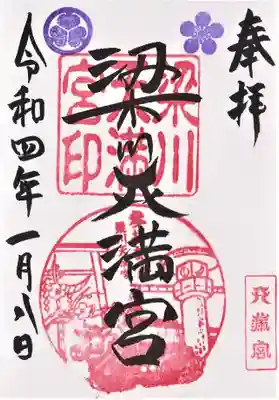 奉拝
梁川天満宮
令和四年一月八日
梁川
天満
宮印
天満宮